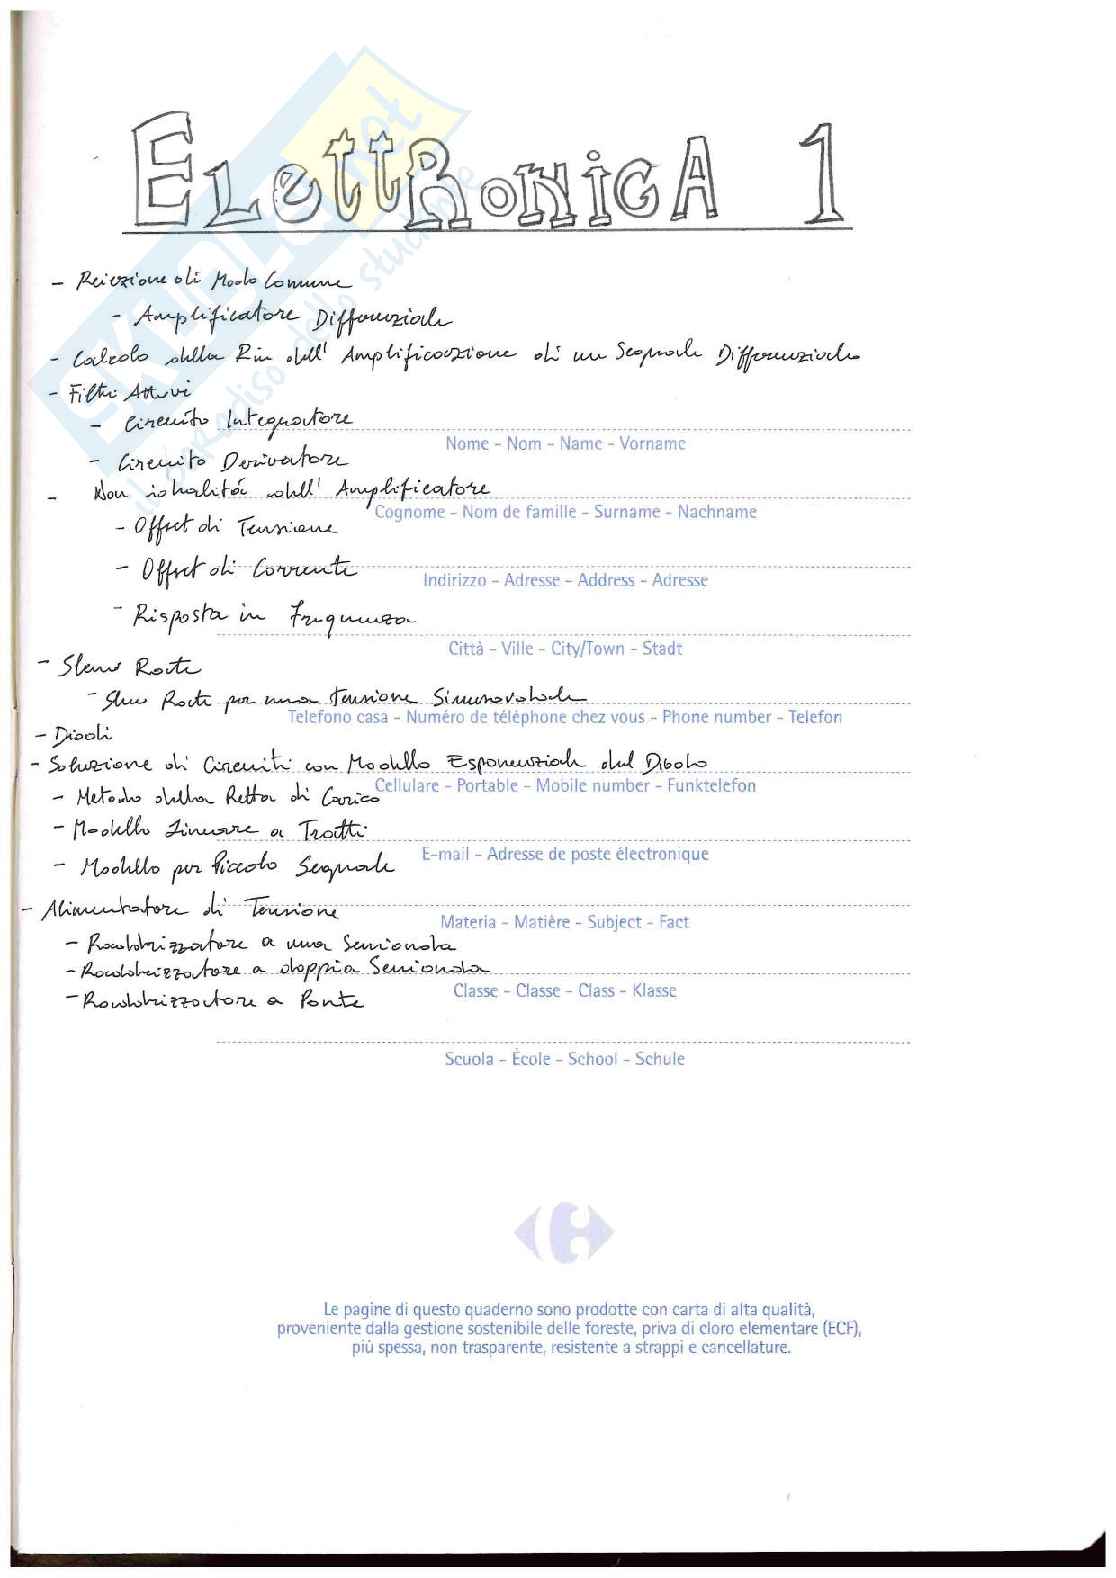 ELettRONICA 1
- Reiezione di Modo Comune
- Amplificatore Differenziale
- Calcolo della Rin dell' Amplificazione di un Segnale Differenziale
- Filtri Attivi
- Circuito Integratore
Nome - Nom - Name - Vorname
- Circuito Derivatore
- Non idealità dell' Amplificatore
Cognome - Nom de famille - Surname - Nachname
- Offset di Tensione
- Offset di Corrente
Indirizzo - Adresse - Address - Adresse
- Risposta in Frequenza
Città - Ville - City/Town - Stadt
- Slew Rate
- Slew Rate per una tensione Sinusoidale
Telefono casa - Numéro de téléphone chez vous - Phone number - Telefon
- Diodi
- Soluzione di Circuiti con Modello Esponenziale del Diodo
Cellulare - Portable - Mobile number - Funktelefon
- Metodo della Retta di Carico
- Modello Lineare a Tratti
E-mail - Adresse de poste électronique
- Modello per Piccolo Segnale
- Alimentatore di Tensione
Materia - Matière - Subject - Fact
- Raddrizzatore a una Semionda
- Raddrizzatore a doppia Semionda
Classe - Classe - Class - Klasse
- Raddrizzatore a Ponte
Scuola - École - School - Schule
Le pagine di questo quaderno sono prodotte con carta di alta qualità,
proveniente dalla gestione sostenibile delle foreste, priva di cloro elementare (ECF),
più spessa, non trasparente, resistente a strappi e cancellature.
SKUOLA.net
il paradiso dello studente